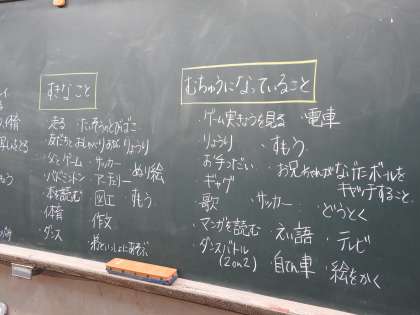 すきなこと
走る・たいそうのとびばこ
・友だちとおしゃべり
りょうり
・ゲーム・サッカー
ぬり絵
・バドミントン
・本を読む・図工・すもう
・体育
・作文
・ダンス
むちゅうになっていること
・ゲーム実きょうを見る
・電車
・りょうり
・すもう
・お手つだい
・お兄ちゃんがなげたボールを
キャッチすること
・ギャグ
・歌
・サッカー
・どうとく
・マンガを読む
・えい語
・テレビ
・ダンスバトル
(2on2)
・自てん車
・絵をかく